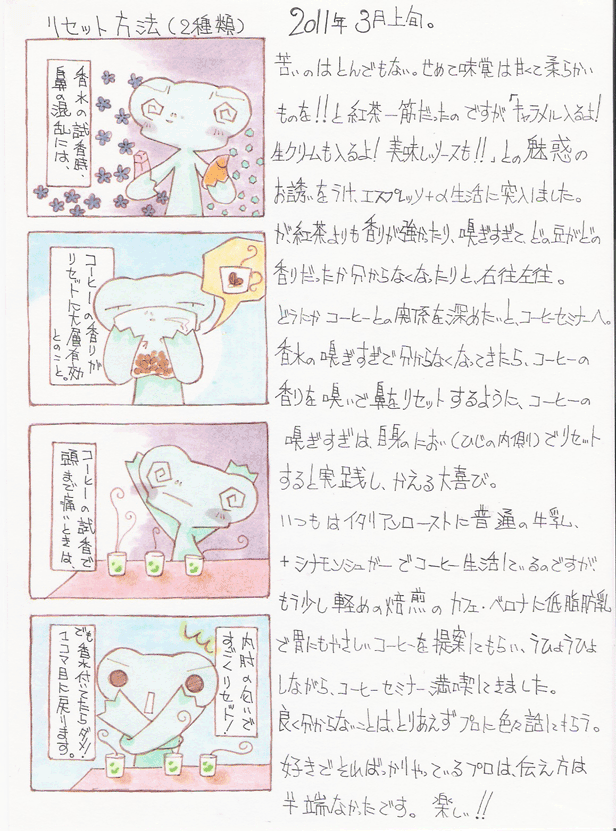 リセット方法(2種類)
香水の試香時、
鼻の混乱には、
コーヒーの香りが
リセットに大層有効
とのこと。
コーヒーの試香で
頭まで痛いときは、
内肘の匂いで
すごくリセット!
でも香水付いてたらダメ!
1コマ目に戻ります。
2011年 3月上旬。
苦いのはとんでもない。せめて味覚は甘くて柔らかい
ものを!!と紅茶一筋だったのですが「キャラメル入るよ!
生クリームも入るよ!美味しいソースも!!」との魅惑の
お誘いをうけ、エスプレッソ+α生活に突入しました。
が、紅茶よりも香りが強かったり、嗅ぎすぎて、どの豆がどの
香りだったか分からなくなったりと、右往左往。
どうにかコーヒーとの関係を深めたいと、コーヒーセミナーへ。
香水の嗅ぎすぎで分からなくなってきたら、コーヒーの
香りを嗅いで鼻をリセットするように、コーヒーの
嗅ぎすぎは、自身のにおい(ひじの内側)でリセット
すると実践し、かえる大喜び。
いつもはイタリアンローストに普通の牛乳、
+シナモンシュガーでコーヒー生活しているのですが、
もう少し軽めの焙煎のカフェ・ベロナに低脂肪乳
で胃にもやさしいコーヒーを提案してもらい、うひょうひょ
しながら、コーヒーセミナー満喫してきました。
良く分からないことは、とりあえずプロに色々話してもらう。
好きでそればっかりやっているプロは、伝え方は
半端なかたです。 楽しい!!